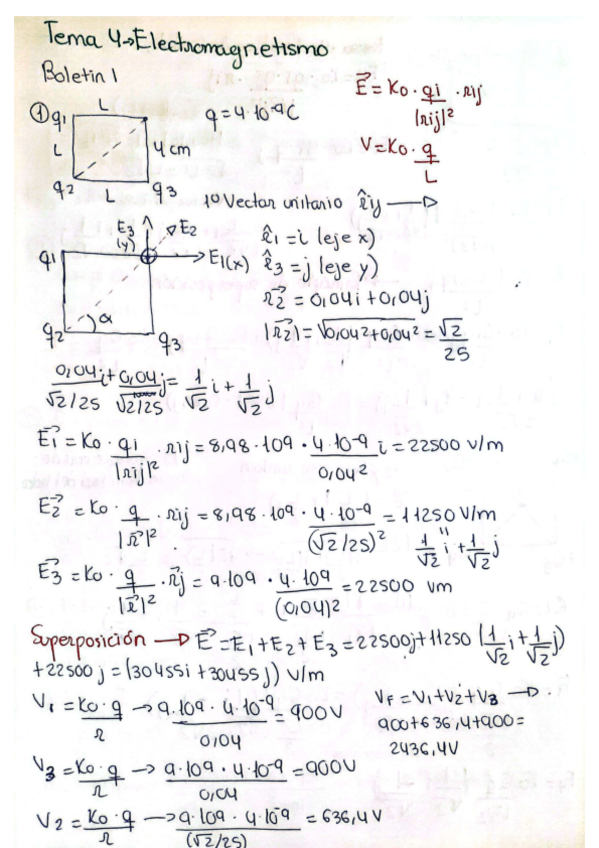 Tema 4→Electromagnetismo
Boletin 1
E⃗ = Ko · qi/|rij|² · rij
V = Ko · q/L
① q1 L q = 4·10⁻⁹C
L 4 cm
q2 L q3
1º Vector unitario r̂ij →
E3 (y) E2
q1 E1(x) r̂1 = i (eje x)
r̂3 = j (eje y)
r⃗2 = 0,04i + 0,04j
q2 α q3 |r⃗2| = √0,04²+0,04² = √2/25
0,04/√2/25 i + 0,04/√2/25 j = 1/√2 i + 1/√2 j
E⃗1 = Ko · qi/|rij|² · rij = 8,98·10⁹ · 4·10⁻⁹/0,04² i = 22500 V/m
E⃗2 = Ko · q/|r⃗|² · rij = 8,98·10⁹ · 4·10⁻⁹/(√2/25)² = 11250 V/m
" 1/√2 i + 1/√2 j
E⃗3 = Ko · q/|r⃗|² · r⃗j = 9·10⁹ · 4·10⁹/(0,04)² = 22500 vm
Superposición → E⃗ = E1 + E2 + E3 = 22500j + 11250 (1/√2 i + 1/√2 j)
+22500 j = (30455i + 30455 j) V/m
V1 = Ko·q/r → 9·10⁹ · 4·10⁻⁹/0,04 = 900V
VF = V1 + V2 + V3 →
900 + 636,4 + 900 =
2436,4V
V3 = Ko·q/r → 9·10⁹ · 4·10⁻⁹/0,04 = 900V
V2 = Ko·q/r → 9·10⁹ · 4·10⁻⁹/(√2/25) = 636,4V